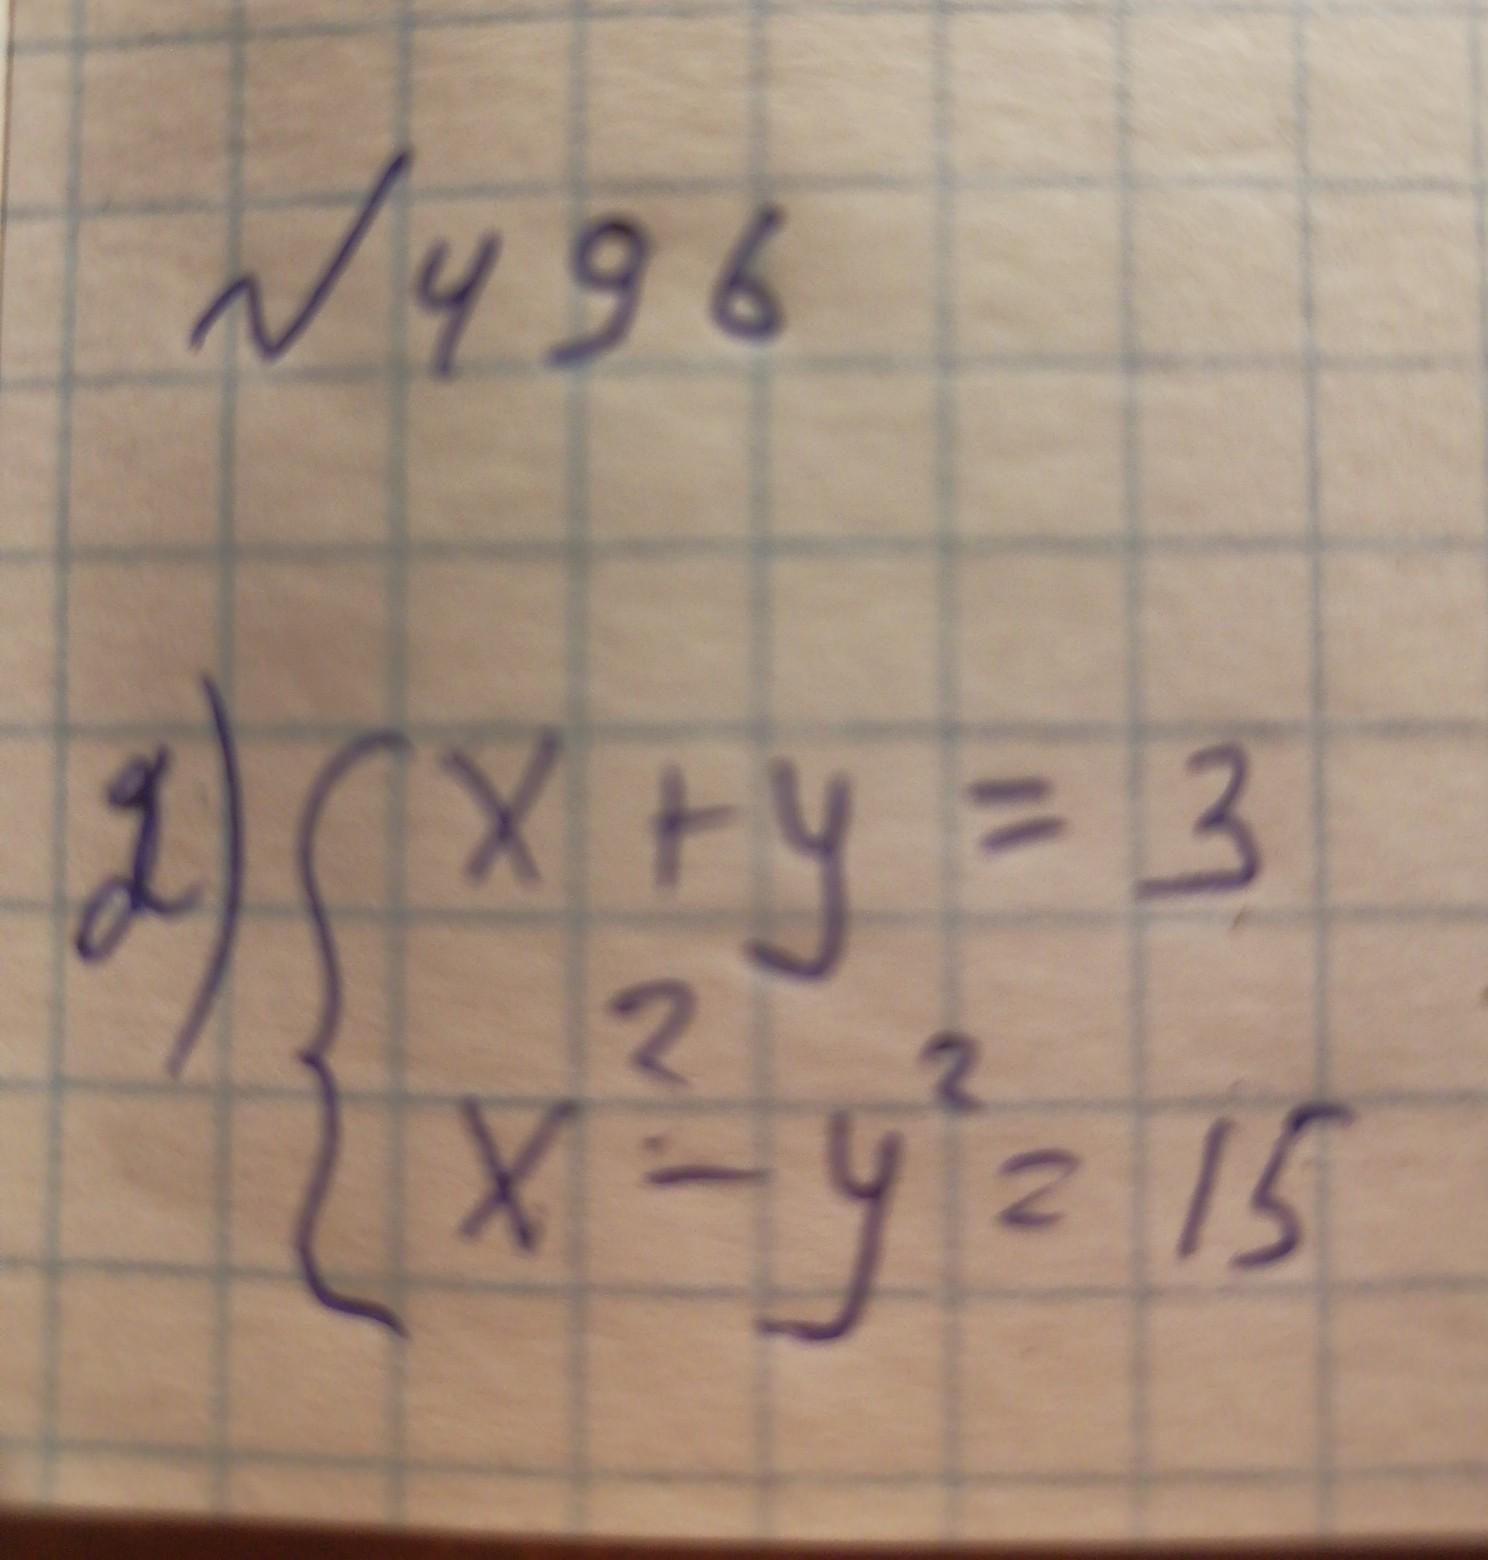 № 496
2) { x + y = 3
x² - y² = 15